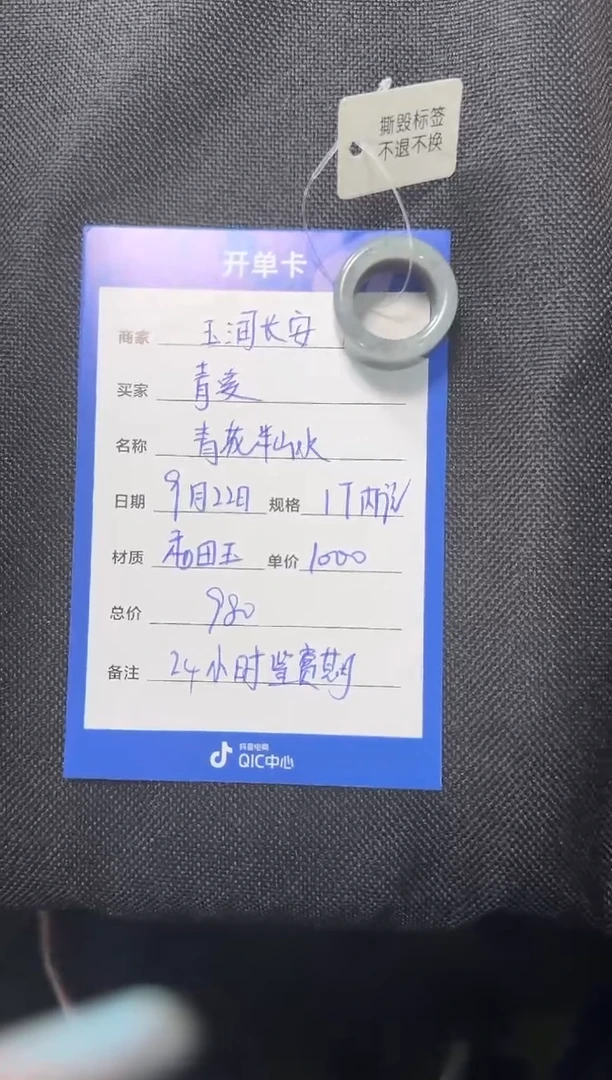 撕毁标签
不退不换
开单卡
商家 玉润长安
买家 青爱
名称 青花牟山水
日期 9月22日 规格 1T
材质 和田玉 单价 1000
总价 980
备注 24小时鉴赏期
抖音电商
QIC中心